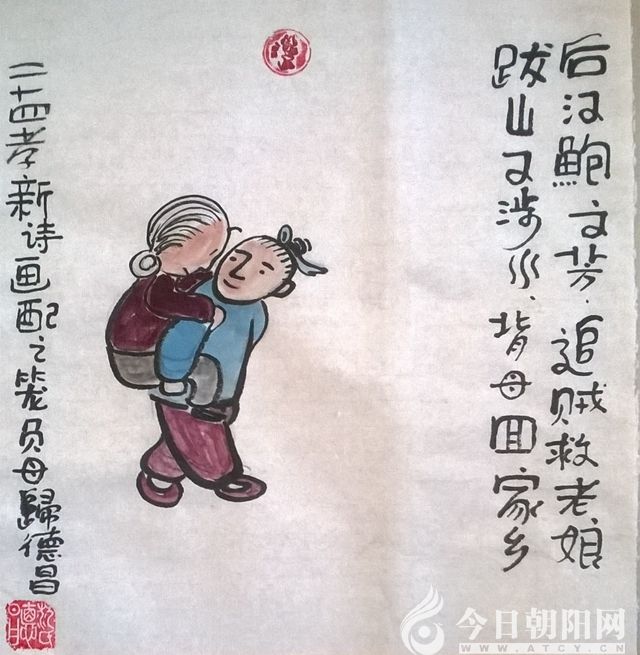 后汉鲍文芳.追贼救老娘
跋山又涉水.背母回家乡
二十四孝新诗画配之笼负母歸德昌
今日朝阳网
WWW.ATCY.CN